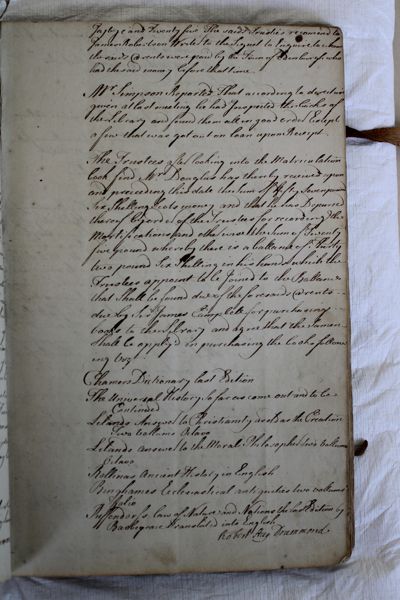 fiftyе and Twenty five The saids Trustees recommend to
James Robertson Writer to the Signet to Enquire to whom
the saids @rents were payd by the Town of Edinburgh who
had the said money before that time.
Mr. Simpson Reported That according to direction
given at last meeting he had Inspected the books of
the Library and found them all in good order Except
a few that was got out on loan upon Receipt.
The Trustees after looking into the Matriculation
book find Mr. Douglas has thereby received upon
and preceeding this date the sum of fifty Seven pound
Six Shilling Scots money and that he has Depursed
thereof by order of the Trustees for recording the
Mortifications and otherwise the Sum of Twenty
five pound whereby there is a ballance of Thirty
two pound Six Shilling in his hands which the
Trustees appoint to be Joined to the Ballance
that Shall be found due of the foresaids @rents
due by Sir James Campbell for purchasing
books to the Library and agree that the Same
Shall be apply'd in purchasing the books following
ing Vizt.
Chamers Dictionary last Edition
The Universal History so far as come out and to be
Continued
Lelands Answer to Christianity as old as the Creation
Two vollums Octavo
Lelands answer to the Moral Philosopher two vollums
Octavo
Rollines Ancient History in English
Binghames Eclesiastical antiquities two vollums
folio
Puffendorfs law of Nature and Nations the last Edition by
Barbeyrac Translated into English
Robert Hay Drummond